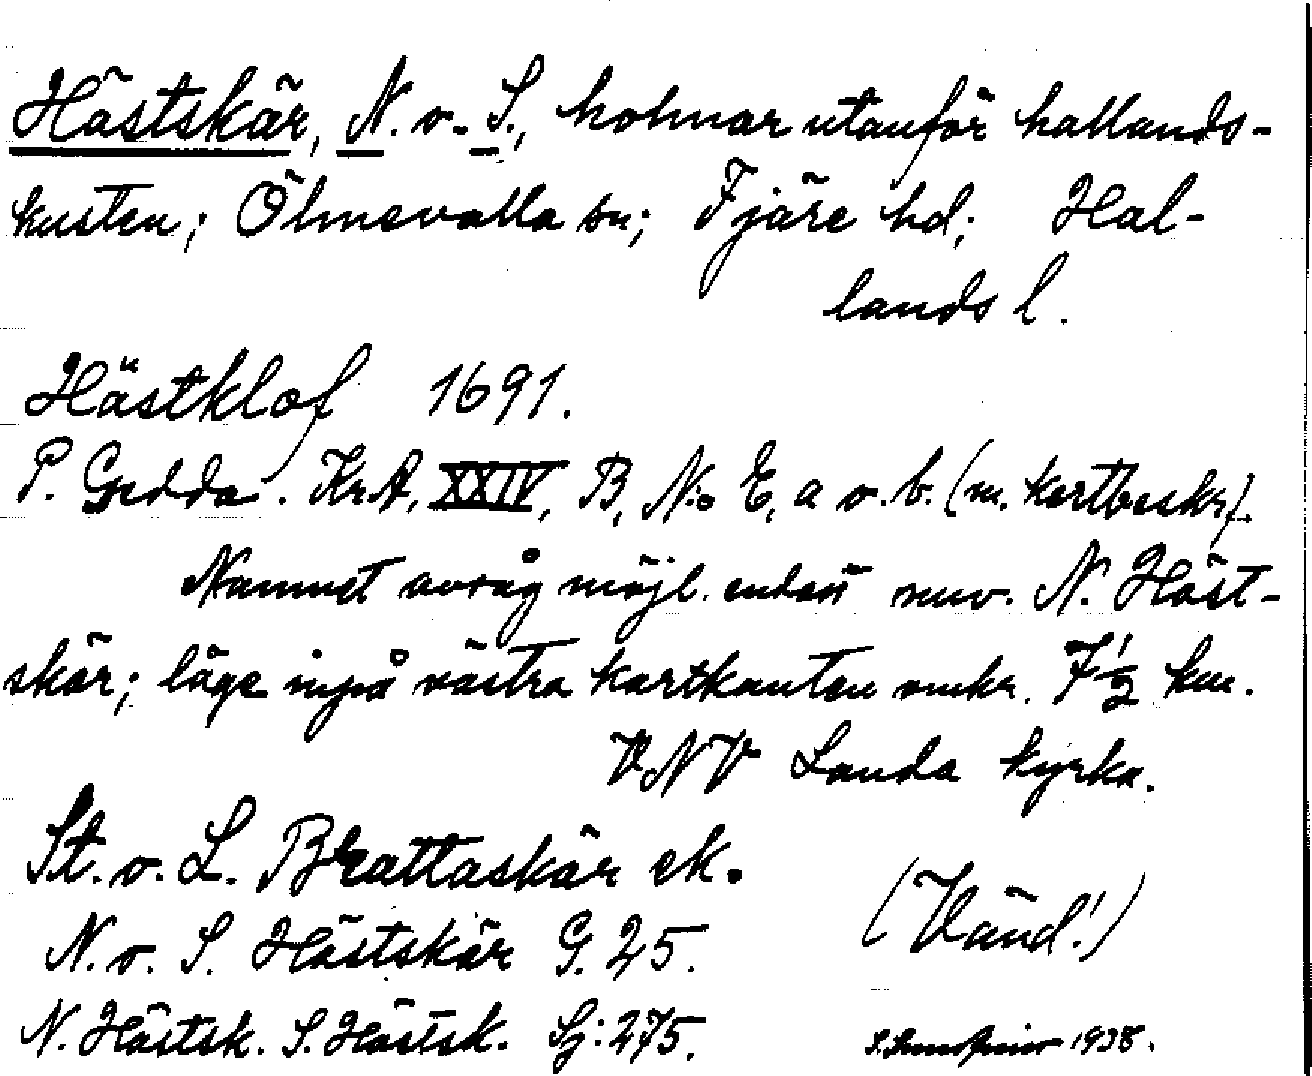 Hästskär, N. o. S., holmar utanför hallands-
kusten; Ölmevalla sn; Fjäre hd; Hal-
lands l.
Hästklof 1691.
P. Gedda. Kr.A, XXIV, B, N:o E, a o. b. (m. kartbeskr).
Namnet avsåg möjl. endast nuv. N. Häst-
skär; läge inpå västra kartkanten omkr. 7 1/2 km.
VNV Landa kyrka.
St. o. L. Brattaskär ek.
N. o. S. Hästskär G. 25.
(Vänd!)
N. Hästsk. S. Hästsk. Sj: 275.
1938.